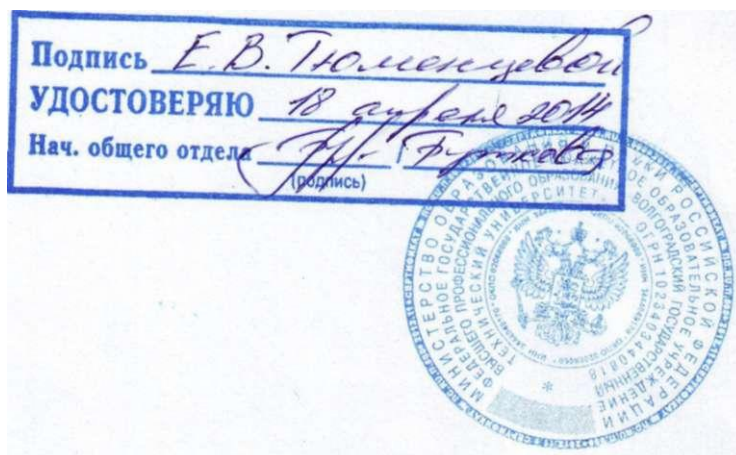 Подпись Е.В. Тюменцевой
УДОСТОВЕРЯЮ 18 апреля 2014
Нач. общего отдела
(подпись)
МИНИСТЕРСТВО ОБРАЗОВАНИЯ И НАУКИ РОССИЙСКОЙ ФЕДЕРАЦИИ
ФЕДЕРАЛЬНОЕ ГОСУДАРСТВЕННОЕ БЮДЖЕТНОЕ ОБРАЗОВАТЕЛЬНОЕ УЧРЕЖДЕНИЕ
ВЫСШЕГО ПРОФЕССИОНАЛЬНОГО ОБРАЗОВАНИЯ ВОЛГОГРАДСКИЙ ГОСУДАРСТВЕННЫЙ
ТЕХНИЧЕСКИЙ УНИВЕРСИТЕТ
ОГРН 1023403440818